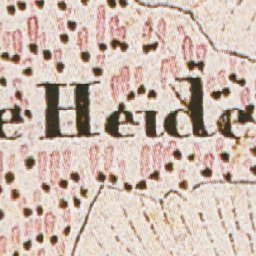 e Heide